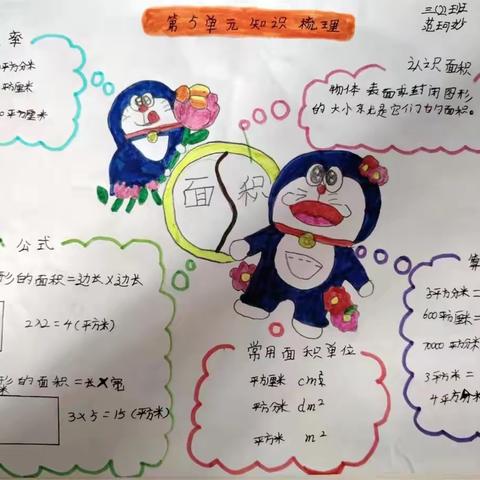 第5单元知识梳理
三(2)班
率
平方分米
平方厘米
平方厘米
认识面积
物体表面或封闭图形
的大小就是它们的面积。
面积
公式
形的面积=边长×边长
2×2=4(平方米)
形的面积=长×宽
3×5=15(平方米)
常用面积单位
平方厘米 cm²
平方分米 dm²
平方米 m²
算
3平方分米=
600平方厘米=
7000平方分米
3平方米=
4平方分米